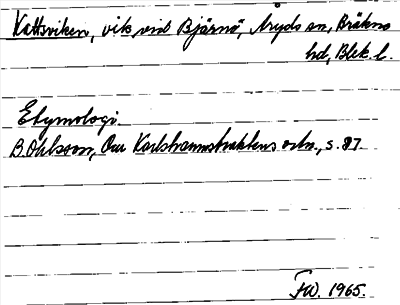 Kattsviken, vik vid Bjärnö, Åryds sn, Bräkne
hd, Blek. l.
Etymologi.
B. Ohlsson, Om Karlshamnstraktens ortn., s. 87
FW. 1965.